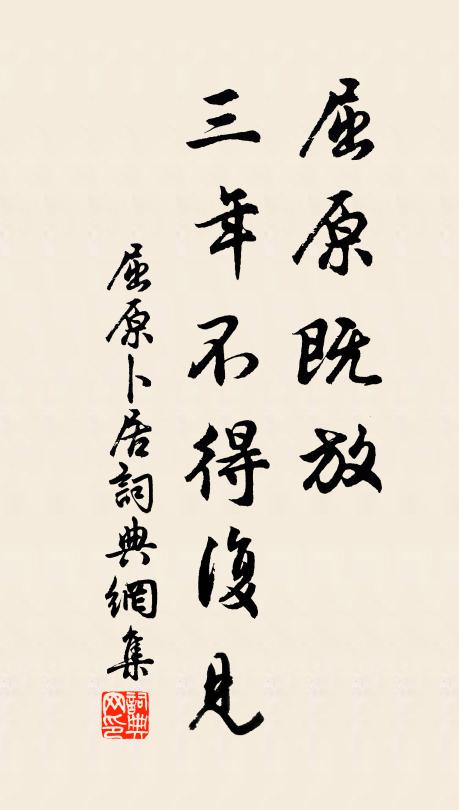 屈原既放
三年不得復見
屈原卜居詞典網集
詞典网印